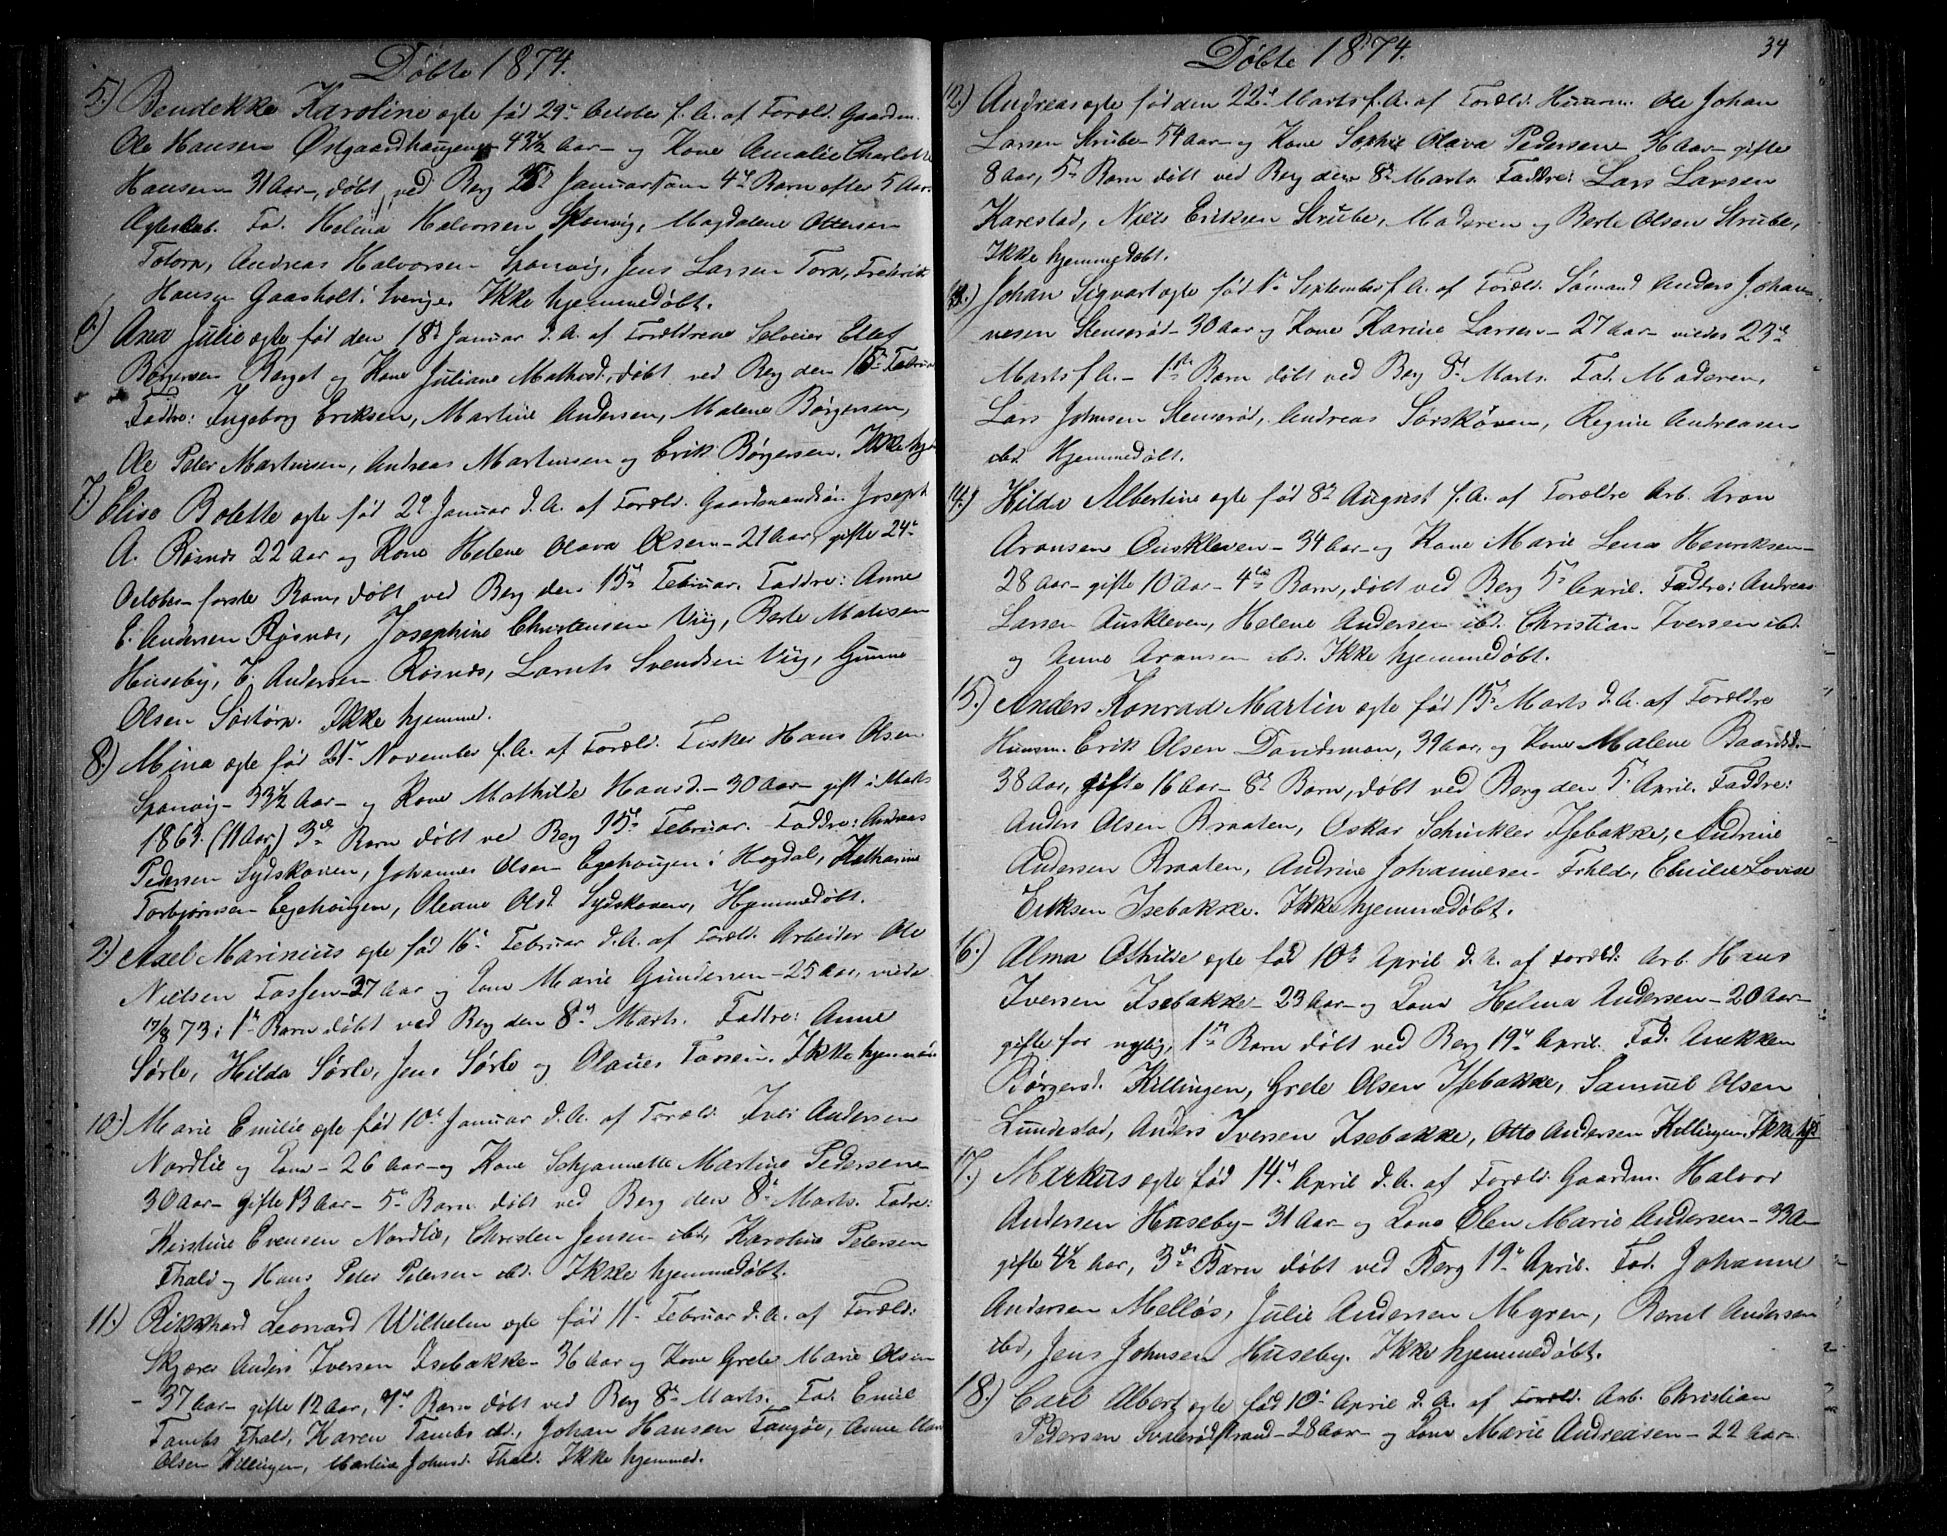 Døbte 1874.
5.) Bendekke Karoline ægte fød 29de October f. A. af Foræld. Gaardm.
Ole Hansen Østgaardhaugene 43½ Aar – og Kone Amalie Charlotte
Hansen 31 Aar –, døbt ved Berg Januar som 4de Barn efter 5 Aars
Ægteskab. Fad. Helma Halvorsen Sponvig, Magdalene Ottersen
Totorp, Andreas Halvorsen Sponvig, Jens Larsen Torp, Frederik
Hansen Gaasholt i Sverige. Ikke hjemmedøbt.
6.) Ana Julie ægte fød den 18de Januar d. A. af Forældrene Selveier Ellef
Børgersen Berget og Kone Juliane Mathisd., døbt ved Berg den 15de Februar
Faddre: Ingeborg Eriksen, Martine Andersen, Malene Børgersen,
Ole Peter Martinsen, Andreas Martinsen og Erik Børgersen. Ikke hje
7.) Elise Bolette ægte fød 2de Januar d. A. af Foræld. Gaardmandsøn Joseph
A. Røsnæs 22 Aar og Kone Helene Olava Olsen – 21 Aar, gifte 24de
October – første Barn, døbt ved Berg den 15de Februar. Faddre: Anne
E. Andersen Røsnæs, Josephine Christensen Viig, Berte Matisen
Huseby, E. Andersen Røsnæs, Laruts Svendsen Viig, Gunne
Olsen Sørtorp. Ikke hjemmed.
8.) Mina ægte fød 21de November f. A. af Foræld. Fisker Hans Olsen
Sponvig – 33½ Aar – og Kone Mathilde Hansd. – 30 Aar – gift i Marts
1863. (11 Aar) 3die Barn døbt ved Berg 15de Februar. Faddre: Andreas
Pedersen Sydskoven, Johannes Olsen Egehougen i Hogdal, Katharine
Torbjørnsen Egehougen, Oleane Olsd. Sydskoven, Hjemmedøbt.
9.) Axel Marinius ægte fød 16de Februar d. A. af Foræld. Arbeider Ole
Nielsen Fossen – 27 Aar og Kone Marie Gundersen – 25 Aar, viede
17/8 73: 1ste Barn døbt ved Berg den 8de Marts. Faddre: Anne
Sørle, Hilda Sørle, Jens Sørle og Olaves Fossen. Ikke hjemmdø
10.) Marie Emilie ægte fød 10de Januar d. A. af Foræld. Iver Andersen
Nordlie og Kone – 26 Aar – og Kone Schjannette Martine Pedersene –
30 Aar – gifte 13 Aar – 5te Barn døbt ved Berg den 8de Marts. Fadre:
Kristine Evensen Nordlie, Christen Jensen ibd, Karoline Petersen
Fhald og Hans Peter Petersen ibd. Ikke hjemmedøbt.
11.) Rikkhard Leonard Wilhelm ægte fød 11te Februar d. A. af Foræld:
Skjærer Anders Iversen Isebakke – 36 Aar og Kone Grete Marie Olsen
– 37 Aar – gifte 12 Aar, 7de Barn døbt ved Berg 8de Marts. Fad. Emil
Tambs Fhald, Karen Tambs ibd, Johan Hansen Tangøe, Anne Mari
Olsen Killingen, Martine Johnsd. Fhald. Ikke hjemmed.
34
Døbte 1874.
12.) Andreas ægte fød den 22de Marts f. A. af Foræld. Husm. Ole Johan
Larsen Strube – 54 Aar – og Kone Sophie Olava Pedersen – 36 Aar – gifte
8 Aar, 5te Barn døbt ved Berg den 8de Marts. Faddre: Lars Larsen
Karestad, Niels Eriksen Strube, Moderen og Berte Olsen Strube,
Ikke hjemmedøbt.
13.) Johan Sigvart ægte fød 1ste September f. A. af Foræld. Sømand Anders Johan-
nesen Stenerød – 30 Aar og Kone Karine Larsen – 27 Aar – viedes 23de
Marts f. A. – 1ste Barn døbt ved Berg 8de Marts. Fad. Moderen,
Lars Johnsen Stenerød, Andreas Sørskoven, Regine Andreasen
ibd. Hjemmedøbt.
14.) Hilda Albertine ægte fød 8de August f. A. af Forældre Arb. Aron
Aronsen Auskleven – 34 Aar – og Kone Marie Lena Henriksen –
28 Aar – gifte 10 Aar – 4de Barn, døbt ved Berg 5te April. Faddre: Andreas
Larsen Auskleven, Helene Andersen ibd. Christian Iversen ibd.
og Anne Aronsen ibd. Ikke hjemmedøbt.
15.) Anders Konrad Martin ægte fød 15de Marts d. A. af Forældre
Husm. Erik Olsen Davidsmon, 39 Aar, og Kone Malene Baardsd. –
38 Aar, gifte 16 Aar – 8de Barn, døbt ved Berg den 5te April. Faddre:
Anders Olsen Braaten, Oskar Schinkler Isebakke, Andrine
Andersen Braaten, Andrine Johannesen Fhald, Emilie Lovise
Eriksen Isebakke. Ikke hjemmedøbt.
16.) Alma Othilde ægte fød 10de April d. A. af Foræld. Arb. Hans
Iversen Isebakke – 23 Aar – og Kone Helena Andersen – 20 Aar –
gifte for nylig, 1ste Barn døbt ved Berg 19de April. Fad. Anekken
Børgersd. Killingen, Grete Olsen Isebakke, Samuel Olsen
Lundestad, Anders Iversen Isebakke, Otto Andersen Killingen. Ikke hj
17.) Markus ægte fød 14de April d. A. af Foræld. Gaardm. Halvor
Andersen Huseby – 31 Aar – og Kone Elen Marie Andersen – 33 A –
gifte 4½ Aar, 3die Barn døbt ved Berg 19de April. Fad. Johanne
Andersen Melløs, Julie Andersen Myren, Bernt Andersen
ibd, Jens Johnsen Huseby. Ikke hjemmedøbt.
18.) Carl Albert ægte fød 10de April d. A. af Foræld. Arb. Christian
Pedersen Svalerødstrand – 28 Aar – og Kone Marie Andreasen – 22 Aar –